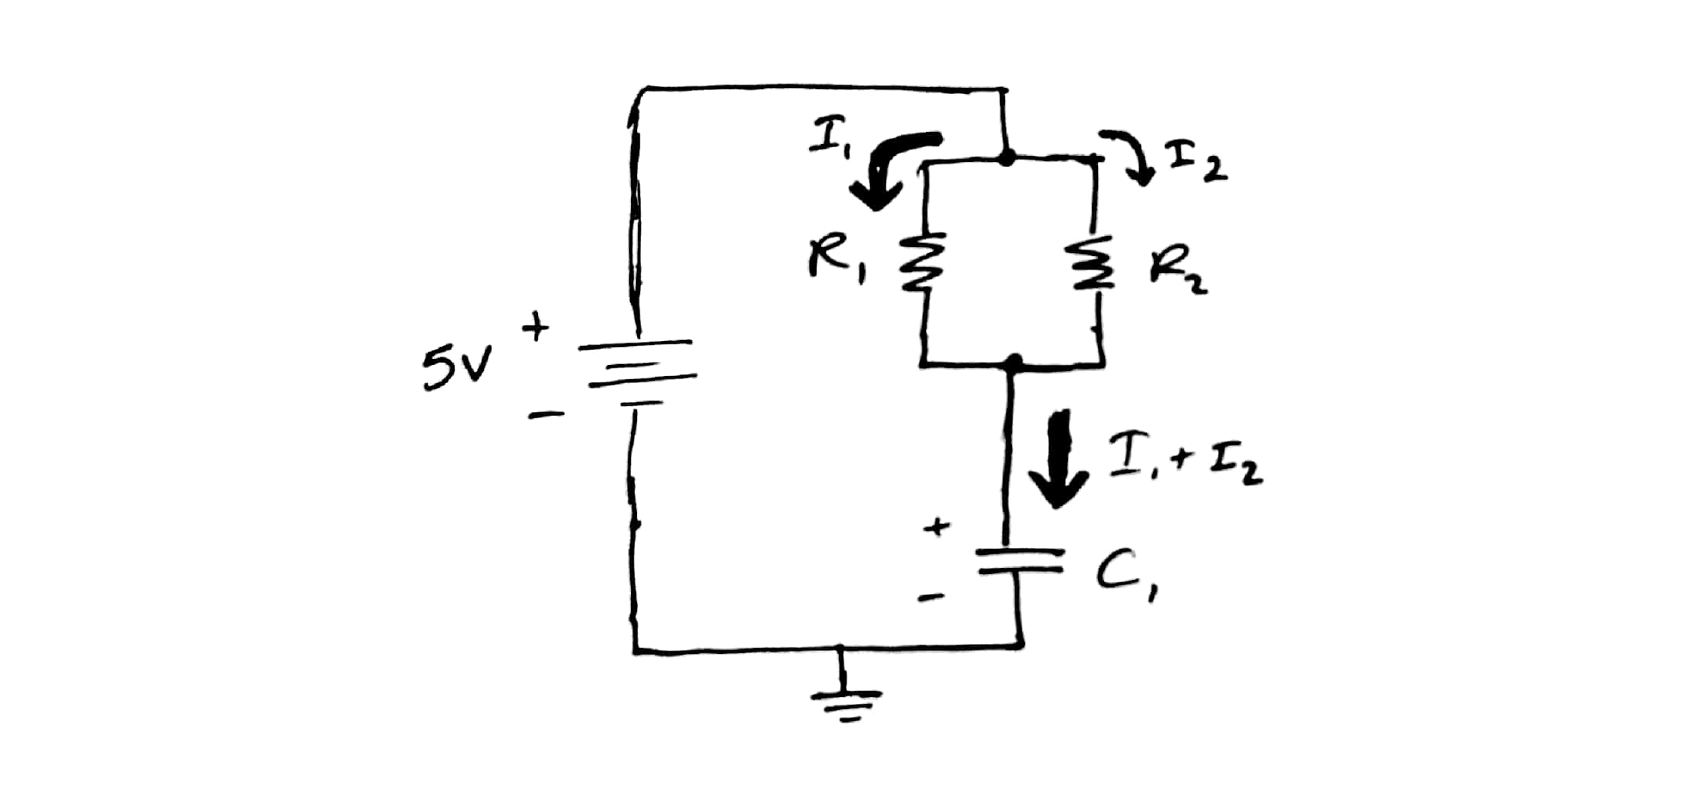 I₁
I₂
R₁
R₂
+
5V
-
I₁ + I₂
+
C₁
-